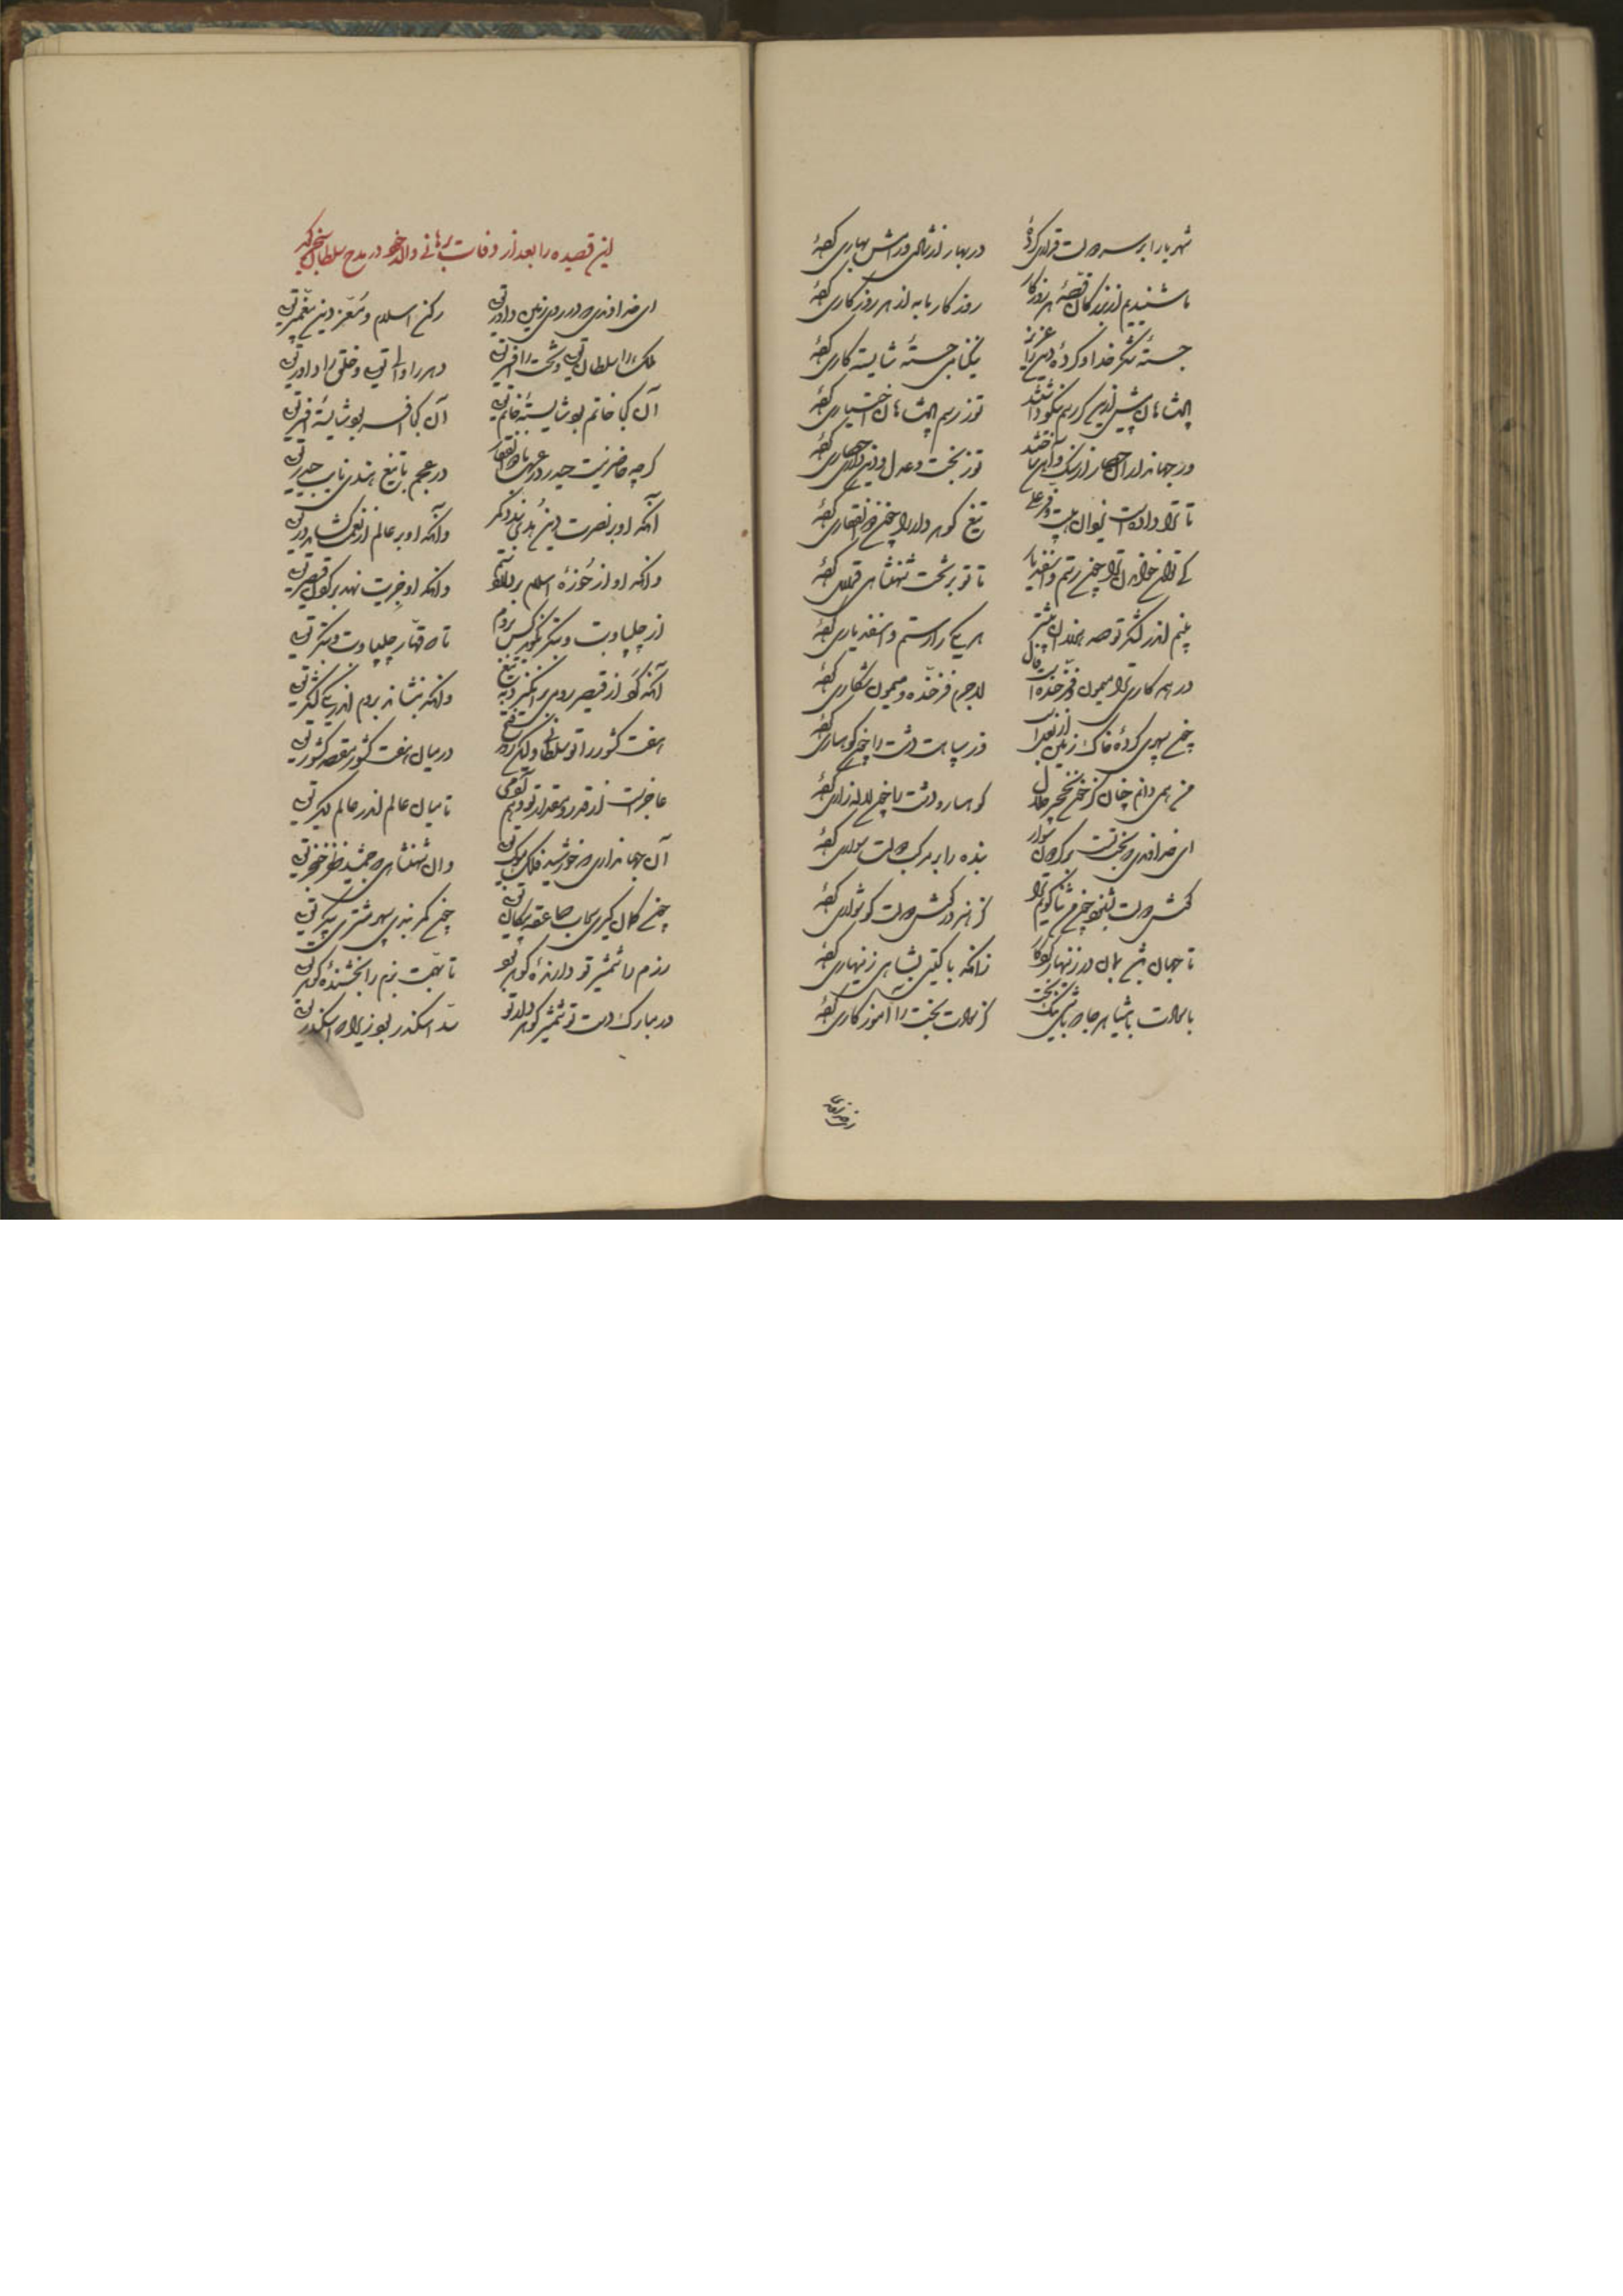 شهریارا بر سر دولت قراری کرده‌ای در بهار از شادی و رامش بهاری کرده‌ای
ما شنیدیم از بزرگان قصهٔ هر روزگار روزگار ما به از هر روزگاری کرده‌ای
جستهٔ شکر خدا و کردهٔ دین را عزیز نیکنامی جستهٔ شایسته کاری کرده‌ای
پادشاهان پیش ازین گر رسم نیکو داشتند تو ز رسم پادشاهان اختیاری کرده‌ای
ور جهانداران حصار از سنگ و آهن ساختند تو ز بخت و عدل و دین و داد حصاری کرده‌ای
تا ترا دادست یزدان هیبت و فر علی تیغ گوهردار را چون ذوالفقاری کرده‌ای
کی توان خواندن ترا چون رستم و اسفندیار تا تو بر تخت شهنشاهی قراری کرده‌ای
بینم اندر لشکر تو صد هزاران بیشتر هر یکی را رستم و اسفندیاری کرده‌ای
در همه کاری ترا میمون و فرخنده است فال لاجرم فرخنده و میمون شکاری کرده‌ای
چون سپهری کردهٔ خاک زمین از وز سپاهت دشت را چون کوهساری کرده‌ای
من همی دانم چنان کز خون نخجیر حلال کوهسار و دشت را چون لاله‌زاری کرده‌ای
ای خداوندی که بختت بر سوار بنده را بر مرکب دولت سواری کرده‌ای
گوش دولت بشنود چون من ثنا گویم ترا کز هنر در گوش دولت گوشواری کرده‌ای
تا جهان باشد بمان در زنهار کردگار زانکه با گیتی بشاهی زینهاری کرده‌ای
با سعادت باش هر جا با نیک بخت کز سعادت بخت را آموزگاری کرده‌ای
این قصیده را بعد از وفات برهانی والد خود در مدح سلطان سنجر گوید
ای خداوندی که در روی زمین داور تویی رکن اسلام و معز دین پیغمبر تویی
ملک را سلطان تویی و تخت را افسر تویی دهر را والی تویی و خلق را داور تویی
آن کجا خاتم بود شایستهٔ خاتم تویی آن کجا افسر بود شایستهٔ افسر تویی
گرچه حاضر نیست حیدر در عرب با ذوالفقار در عجم با تیغ هندی نایب حیدر تویی
آنکه او بر نصرت دین هدی بندد کمر وآنکه او بر عالم از نعمت گشاید در تویی
وانکه او از حوزهٔ اسلام بردارد ستم وانکه او جزیت نهد بر گردن قیصر تویی
از چلیپا و بت و بتگر نگوید کس بروم تا که قهار چلیپا و بت و بتگر تویی
آنکه گرد از قیصر رومی برانگیزد به تیغ وانکه بنشاند بروم اندر یکی لشکر تویی
هفت کشور را تو سلطانی ولیکن روز فتح در میان هفت کشور مقصد کشور تویی
عاجزست از قدر و مقدار تو وهم آدمی تا میان عالم اندر عالم دیگر تویی
آن جهانداری که خورشید فلک موکب تویی وان شهنشاهی که جمشید ظفر خنجر تویی
چون کمان گیری سحاب صاعقه پیکان تویی چون کمر بندی سپهر مشتری پیکر تویی
رزم را شمشیر تو دارندهٔ گوهر بود تا بهمت بزم را بخشندهٔ گوهر تویی
در مبارک دست تو شمشیر گوهردار تو سد اسکندر بود زیرا که اسکندر تویی